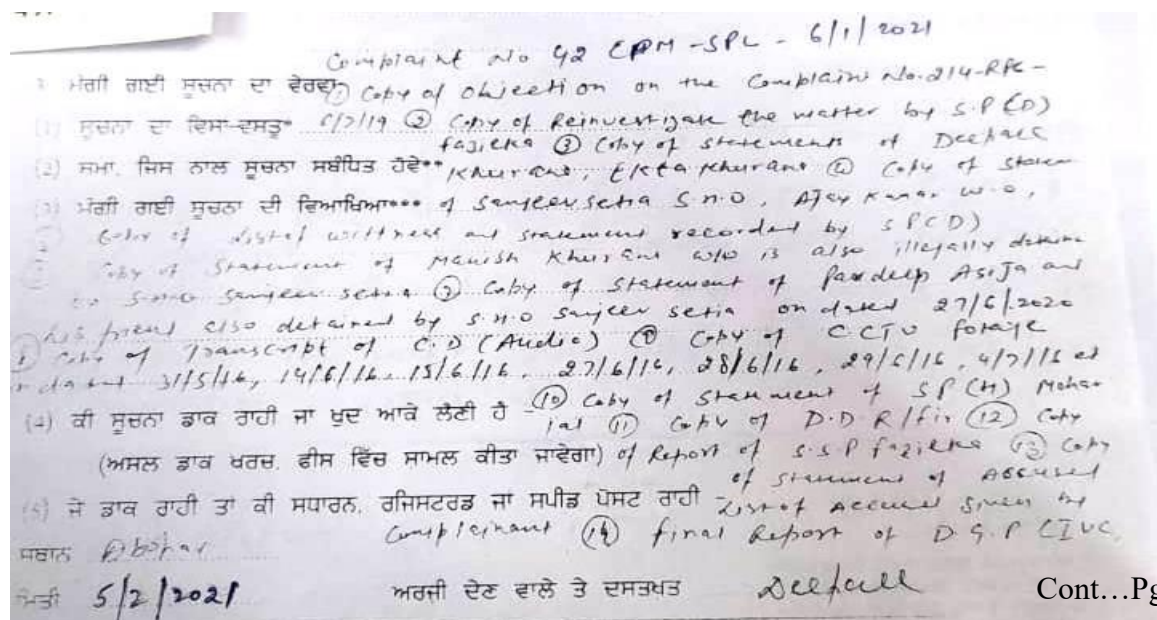 Complaint No 42 CPM -SPL - 6/1/2021
3 ਮੰਗੀ ਗਈ ਸੂਚਨਾ ਦਾ ਵੇਰਵਾ ① Copy of objection on the Complaint No.214-RPC-
(1) ਸੂਚਨਾ ਦਾ ਵਿਸਾ-ਵਸਤੂ* 6/7/19 ② Copy of Reinvestigate the matter by S.P (D)
fazilka ③ Copy of statements of Deepak
(2) ਸਮਾ, ਜਿਸ ਨਾਲ ਸੂਚਨਾ ਸਬੰਧਿਤ ਹੋਵੇ** Khurana, Ekta Khurana ④ Copy of statem
(3) ਮੰਗੀ ਗਈ ਸੂਚਨਾ ਦੀ ਵਿਆਖਿਆ*** of Sanjeev setia S.H.O, Ajay Kumar
Copy of list of wittness and statement recorded by S P(D)
Copy of Statement of Manish Khurana who is also illegally detaine
S.H.O Sanjeev setia ⑦ Copy of statement of Pardeep Asija and
his frend also detained by S.H.O Sanjeev setia on dated 27/6/2020
Copy of Transcript of C.D (Audio) ⑨ Copy of CCTV fotage
dated 31/5/16, 14/6/16, 15/6/16, 27/6/16, 28/6/16, 29/6/16, 4/7/16
(4) ਕੀ ਸੂਚਨਾ ਡਾਕ ਰਾਹੀ ਜਾ ਖੁਦ ਆਕੇ ਲੈਣੀ ਹੈ - ⑩ Copy of Statement of SP (H) Mohan
lal ⑪ Copy of D.D.R/fir ⑫ Copy
(ਅਸਲ ਡਾਕ ਖਰਚ, ਫੀਸ ਵਿੱਚ ਸਾਮਲ ਕੀਤਾ ਜਾਵੇਗਾ) of Report of S.S.P fazilka ⑬ Copy
of statement of Accused
(5) ਜੇ ਡਾਕ ਰਾਹੀ ਤਾਂ ਕੀ ਸਧਾਰਨ, ਰਜਿਸਟਰਡ ਜਾਂ ਸਪੀਡ ਪੋਸਟ ਰਾਹੀ - List of Accused given by
Complainant ⑭ final Report of D.G.P
ਸਥਾਨ Abohar
ਮਿਤੀ 5/2/2021 ਅਰਜੀ ਦੇਣ ਵਾਲੇ ਤੇ ਦਸਤਖਤ Deepak
Cont…Pg